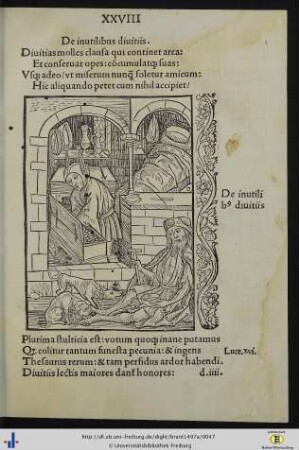 XXVIII
De inutilibus diuitiis.
Diuitias molles clausa qui continet arca:
Et conseruat opes: cõcumulatq; suas:
Vsq; adeo/ut miserum nunq̃ soletur amicum:
Hic aliquando petet cum nihil accipiet/
De inutili
bꝰ diuitiis
Plurima stulticia est: uotum quoq; inane putamus
Qꝫ colitur tantum funesta pecunia: & ingens Luce.xvi.
Thesaurus rerum: & tam perfidus ardor habendi.
Diuitiis lectis maiores danť honores: d.iiii.
http://dl.ub.uni-freiburg.de/diglit/brant1497a/0047
© Universitätsbibliothek Freiburg